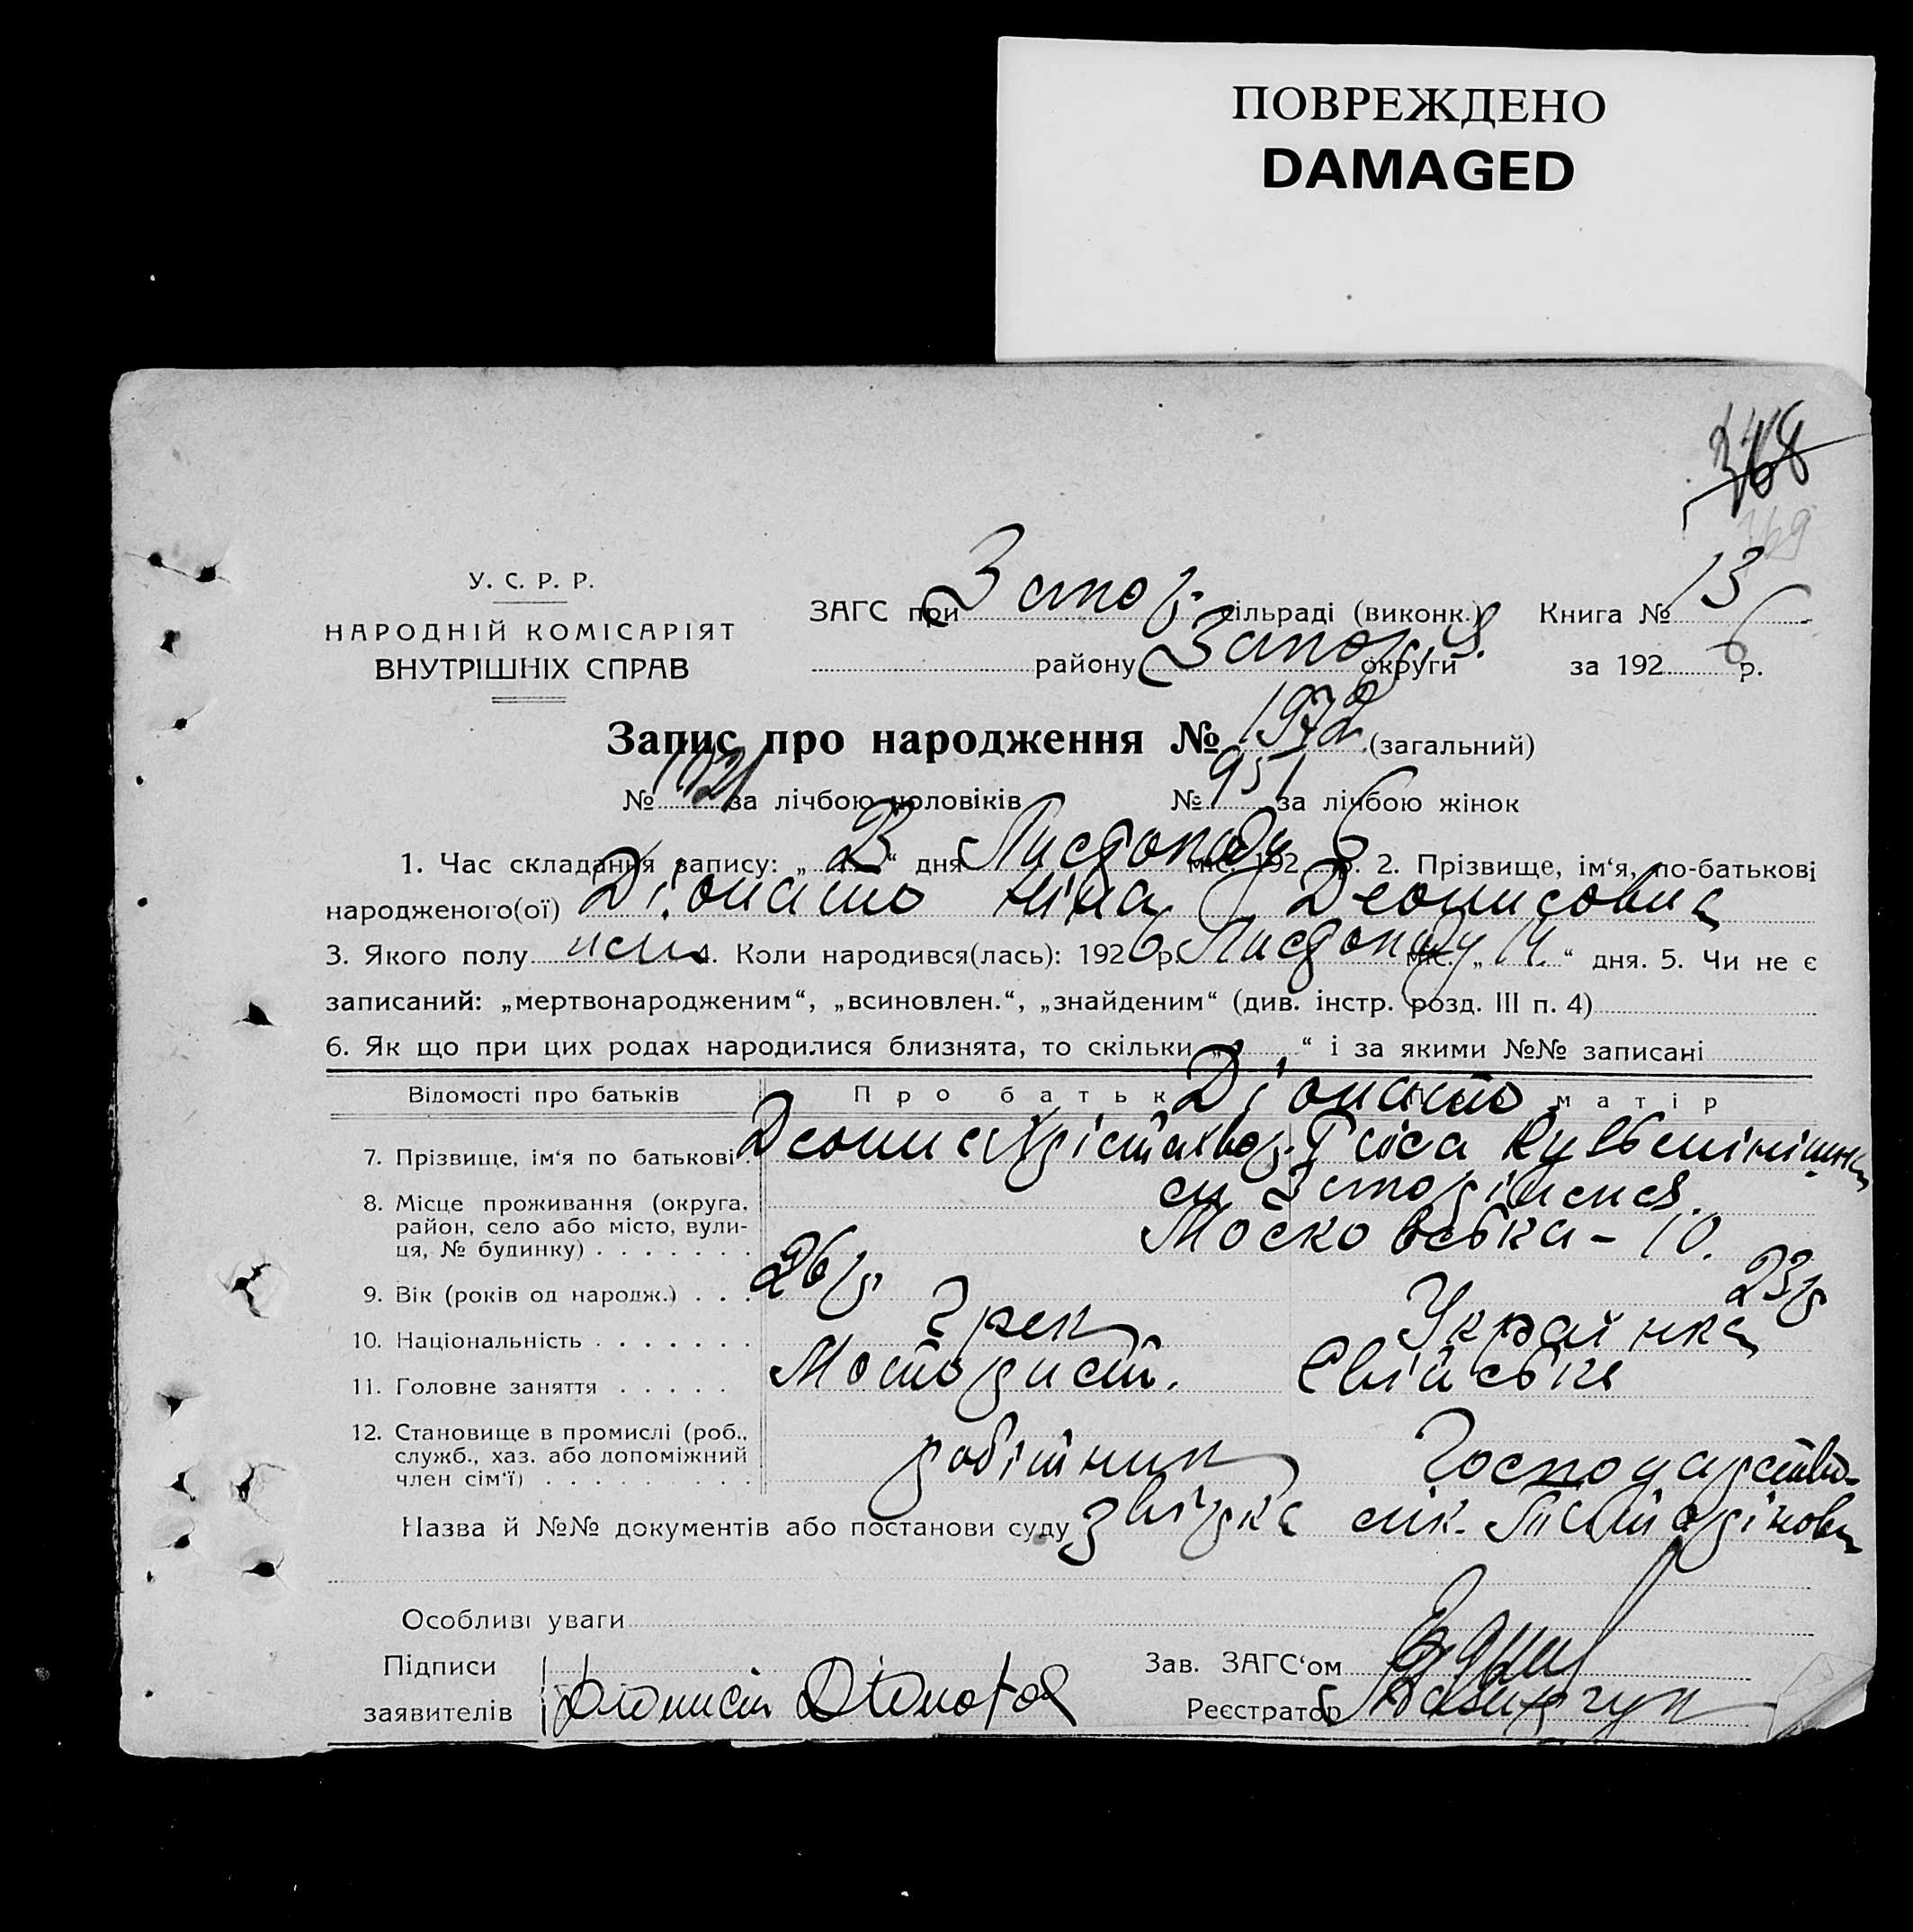 ПОВРЕЖДЕНО
DAMAGED
368
369
У. С. Р. Р.
НАРОДНІЙ КОМІСАРІЯТ
ВНУТРІШНІХ СПРАВ
ЗАГС при сільраді (виконк.) Книга № 13
району округи за 1926 р.
Запис про народження № 1972 (загальний)
№ 1021 за лічбою чоловіків № 951 за лічбою жінок
1. Час складання запису: „23“ дня Листопаду міс. 1926 р. 2. Прізвище, ім‘я, по-батькові
народженого(ої) Діонато Ніна Деонисовна
3. Якого полу жін. 4. Коли народився(лась): 1926 р. Листопаду міс. „14“ дня. 5. Чи не є
записаний: „мертвонародженим“, „всиновлен.“, „знайденим“ (див. інстр. розд. III п. 4)
6. Як що при цих родах народилися близнята, то скільки „ “ і за якими №№ записані
Відомості про батьків Про батьк матір
Діонато
7. Прізвище, ім‘я по батькові Деонис
8. Місце проживання (округа, район, село або місто, вулиця, № будинку)
Московська – 10.
9. Вік (років од народж.) 26 р. 23 р.
10. Національність Грек Українка
11. Головне заняття
12. Становище в промислі (роб., служб., хаз. або допоміжний член сім‘ї) робітник Господарство
Назва й №№ документів або постанови суду
Особливі уваги
Підписи
заявителів
Зав. ЗАГС‘ом
Реєстратор